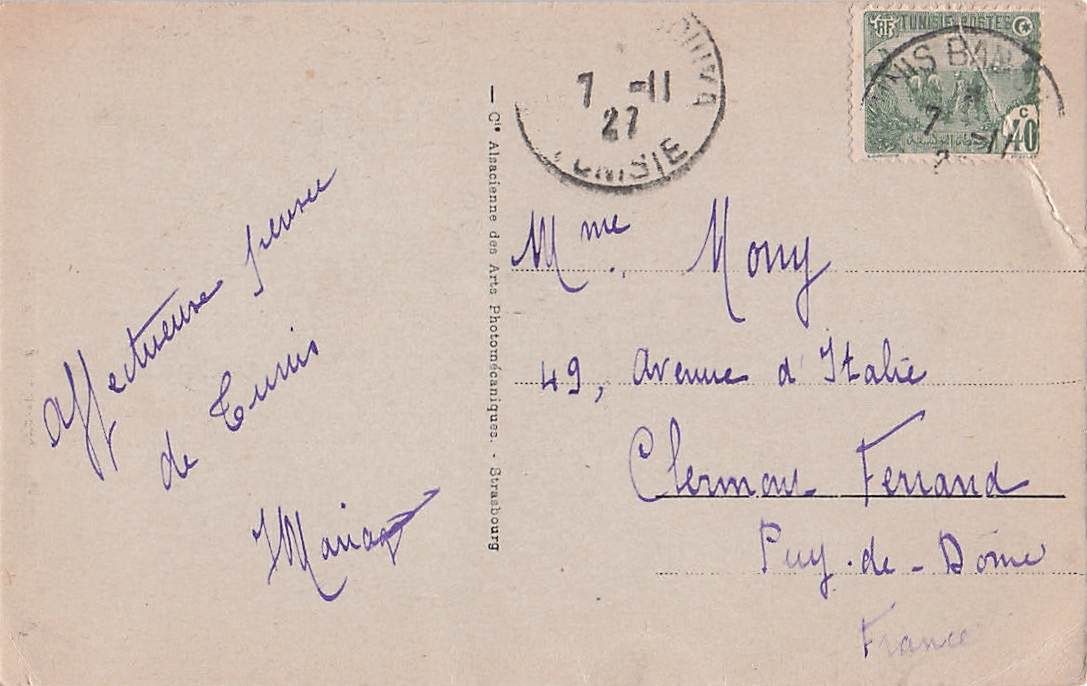 Affectueuse pensée
de Tunis
— Cie Alsacienne des Arts Photomécaniques. - Strasbourg
7 -11
27
TUNISIE
TUNISIE POSTES
TUNIS
7
40 c
Mme. Mony
49, Avenue d'Italie
Clermont Ferrand
Puy-de-Dôme
France